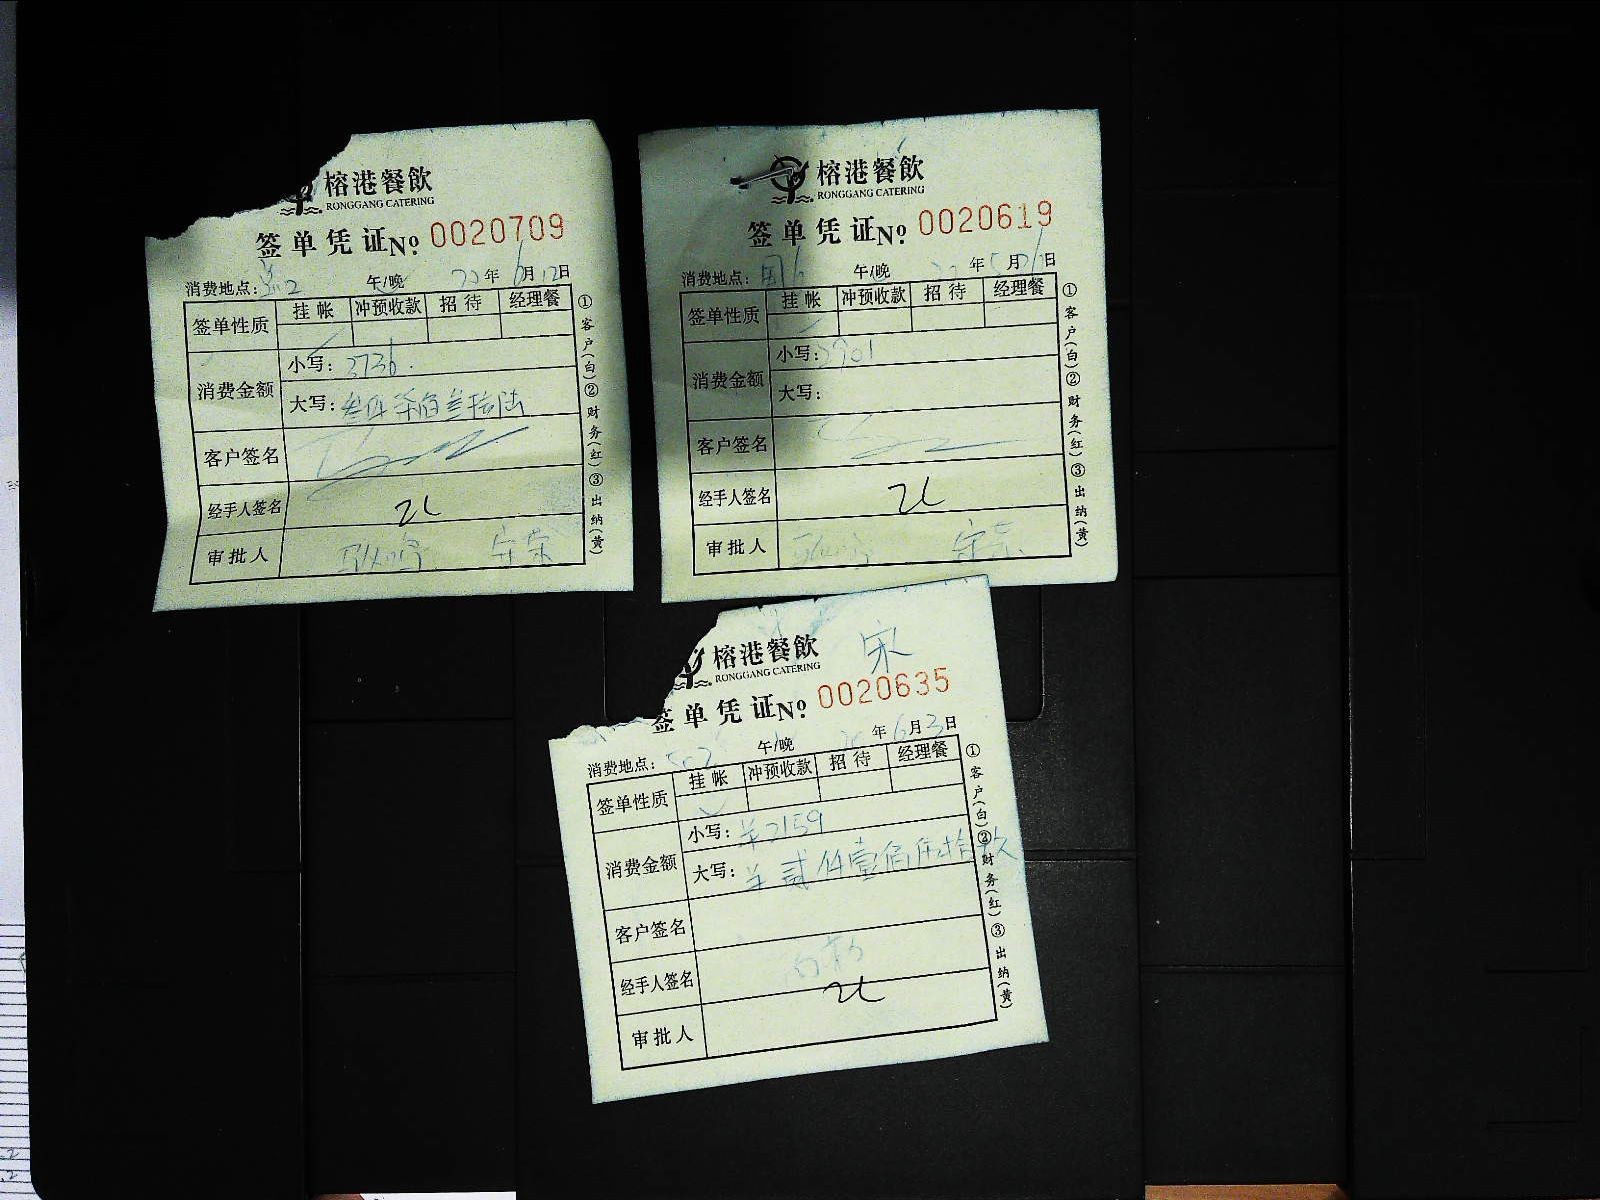 榕港餐飲
RONGGANG CATERING
签单凭证 No. 0020709
消费地点: 午/晚 22年6月12日
签单性质 挂帐 冲预收款 招待 经理餐
消费金额 小写: 3736.
大写: 叁仟柒佰叁拾陆
客户签名
经手人签名
审批人
①客户(白)②财务(红)③出纳(黄)
榕港餐飲
RONGGANG CATERING
签单凭证 No. 0020619
消费地点: 午/晚 年5月 日
签单性质 挂帐 冲预收款 招待 经理餐
消费金额 小写: 2701
大写:
客户签名
经手人签名
审批人
①客户(白)②财务(红)③出纳(黄)
宋
榕港餐飲
RONGGANG CATERING
签单凭证 No. 0020635
消费地点: 午/晚 年6月3日
签单性质 挂帐 冲预收款 招待 经理餐
消费金额 小写: 2159
大写: 贰仟壹佰伍拾玖
客户签名
经手人签名
审批人
①客户(白)②财务(红)③出纳(黄)